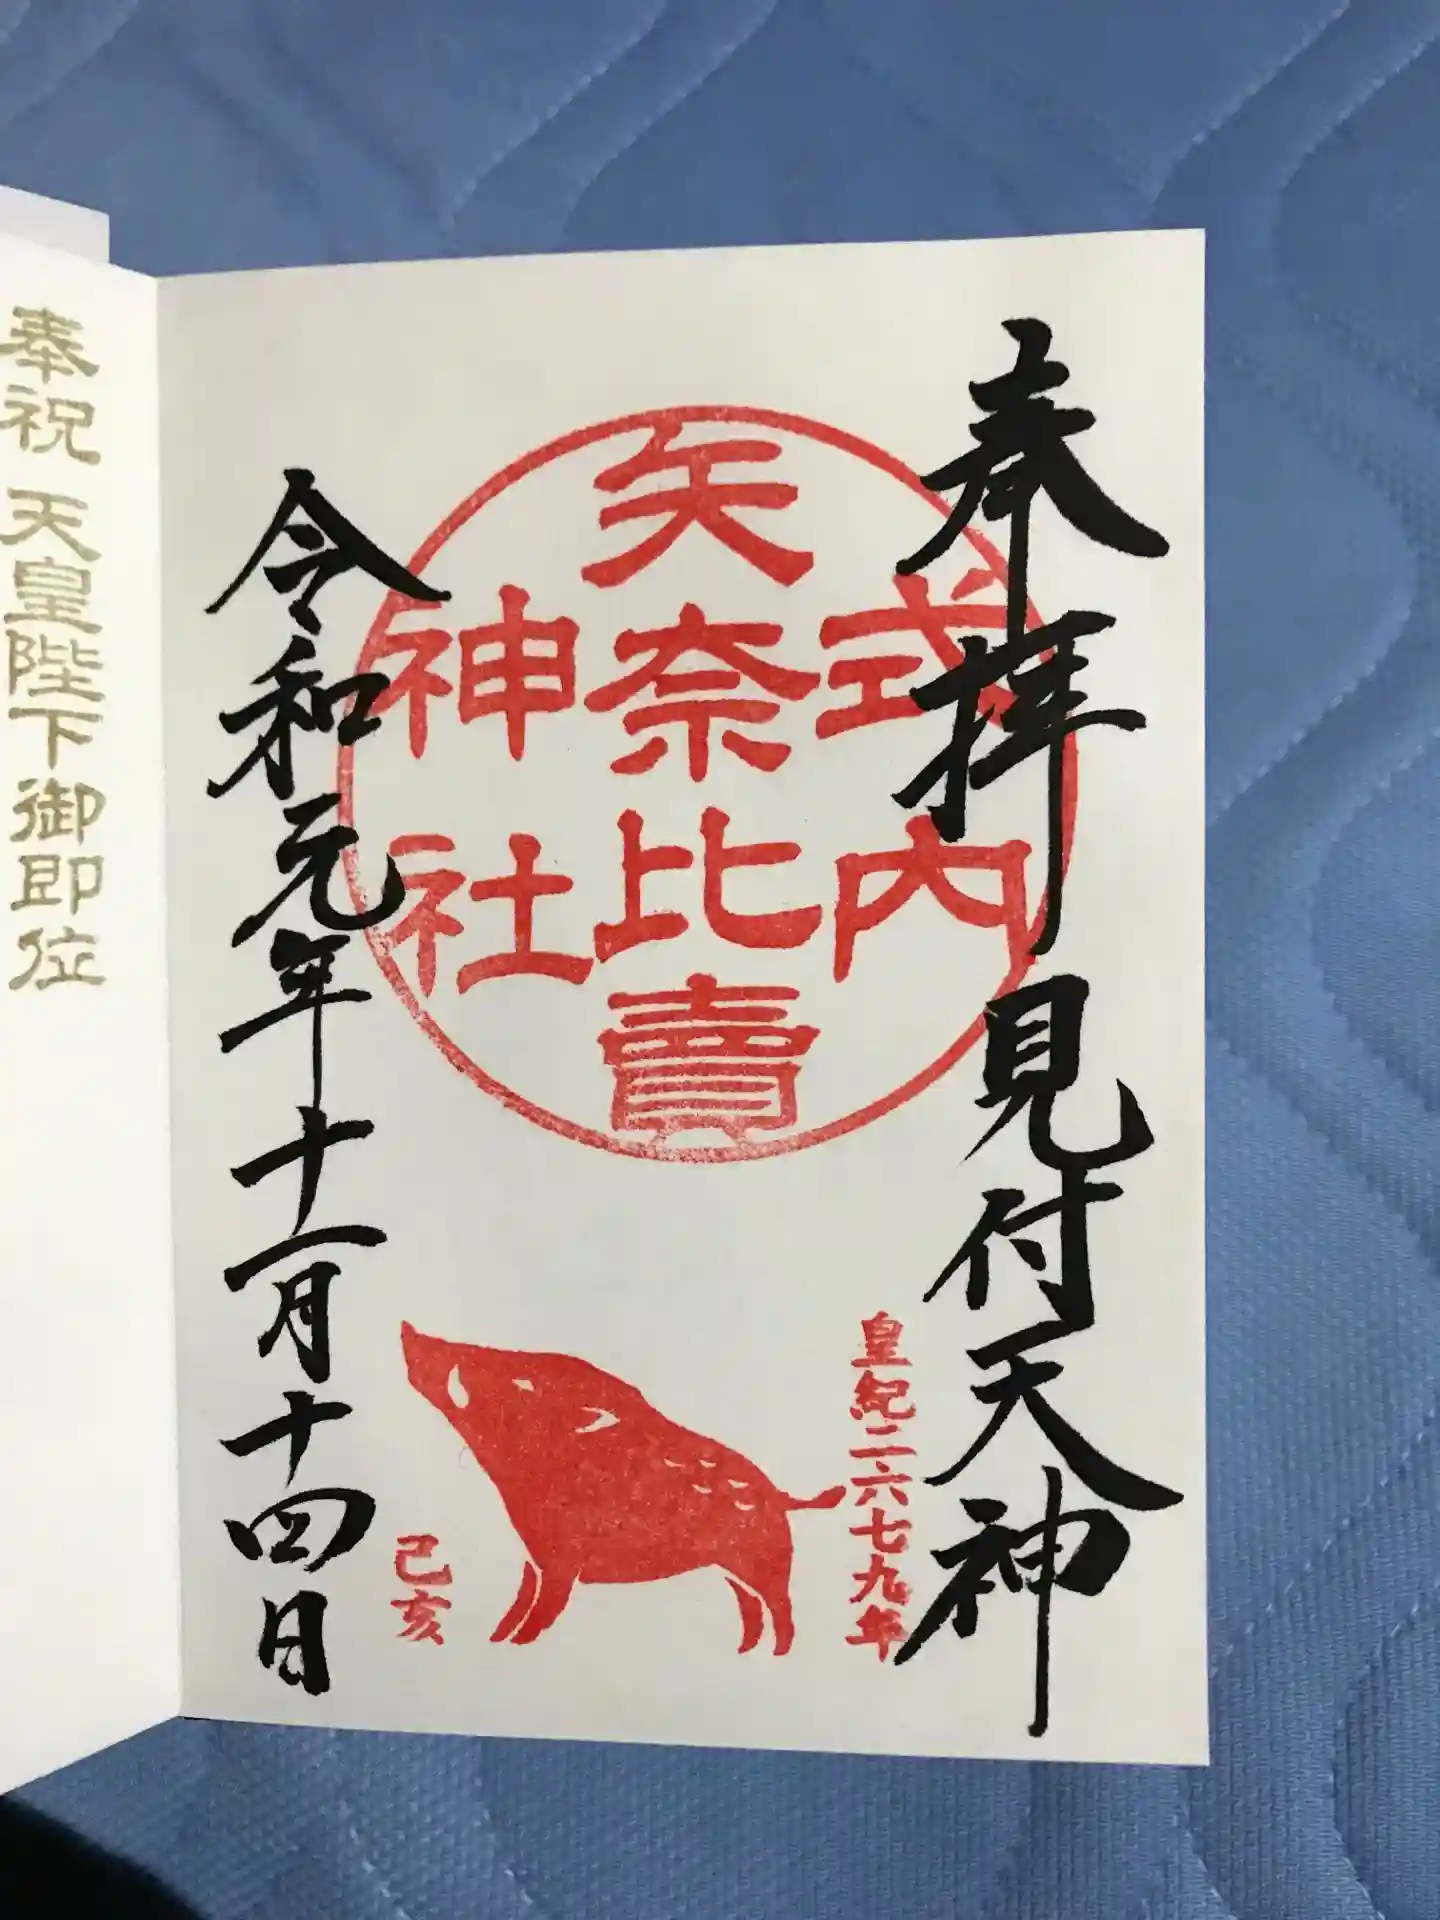 奉拝 見付天神
式内
矢奈比賣
神社
皇紀二六七九年
己亥
令和元年十一月十四日
奉祝 天皇陛下御即位